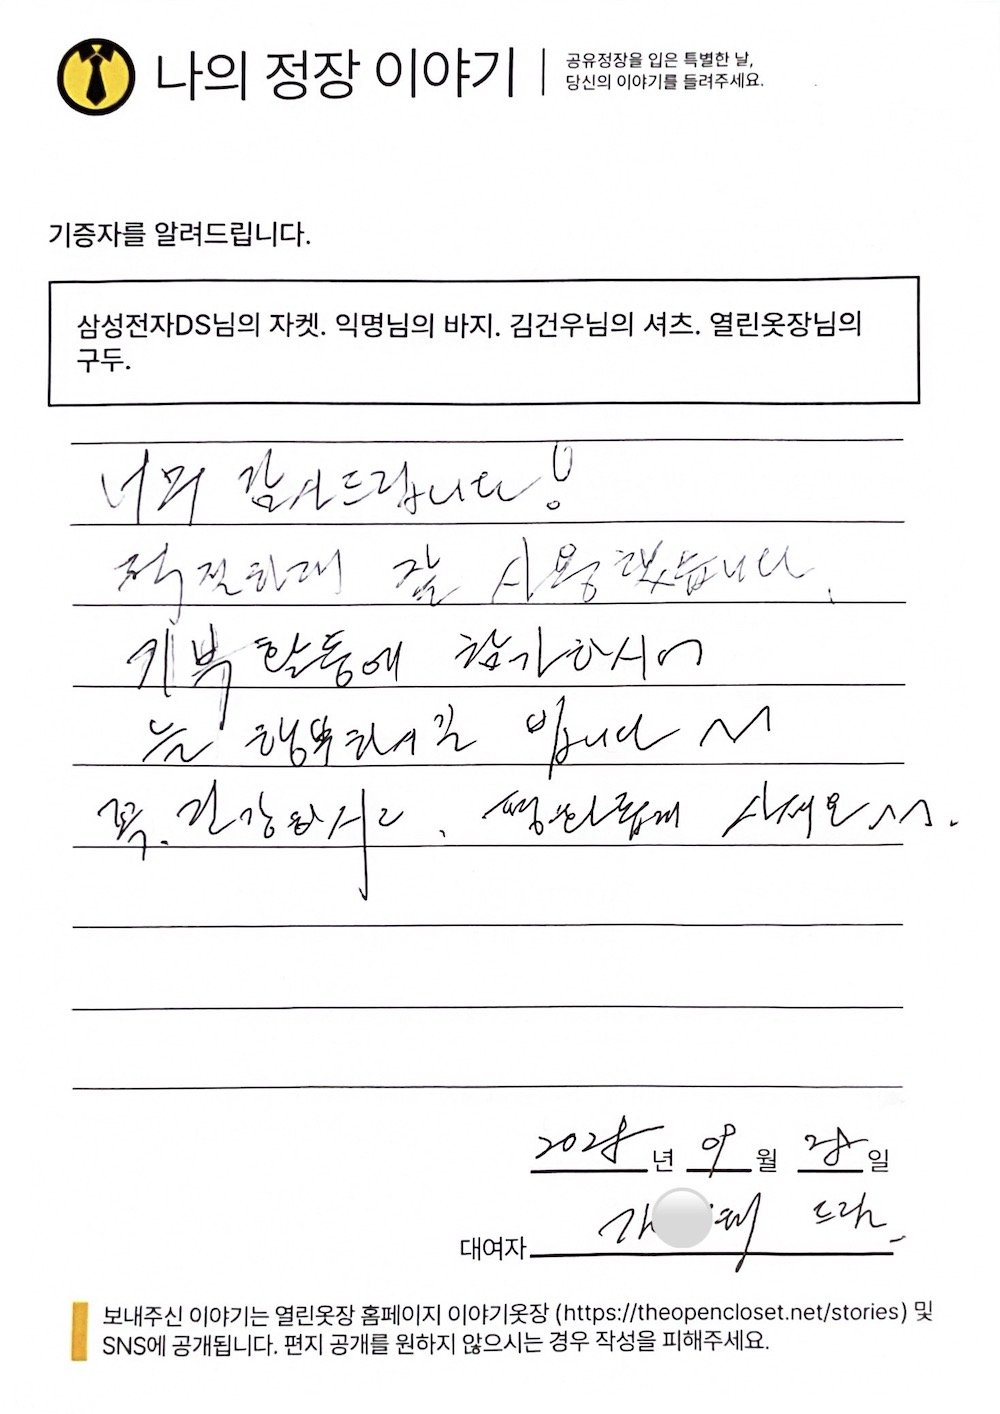 나의 정장 이야기
공유정장을 입은 특별한 날,
당신의 이야기를 들려주세요.
기증자를 알려드립니다.
삼성전자DS님의 자켓. 익명님의 바지. 김건우님의 셔츠. 열린옷장님의
구두.
너무 감사드립니다!
적절하게 잘 사용했습니다.
기부활동에 참가하시어
늘 행복하시길 빕니다
꼭. 건강하시고, 평화롭게 사세요.
년 09월 일
대여자 드림
보내주신 이야기는 열린옷장 홈페이지 이야기옷장 (https://theopencloset.net/stories) 및
SNS에 공개됩니다. 편지 공개를 원하지 않으시는 경우 작성을 피해주세요.